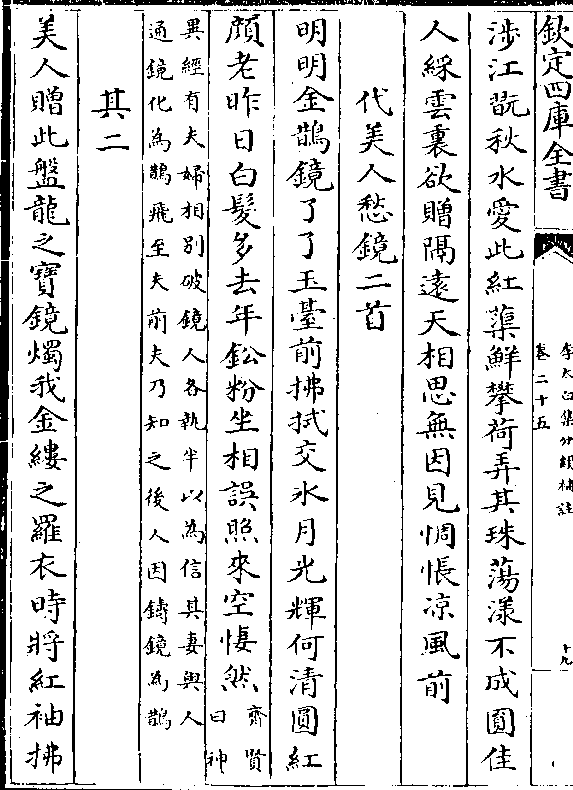 欽定四庫全書
李太白集分類補註
卷二十五
十九
涉江翫秋水愛此紅蕖鮮攀荷弄其珠蕩漾不成圓佳
人綵雲裏欲贈隔遠天相思無因見悵悵凉風前
代美人愁鏡二首
明明金鵲鏡了了玉臺前拂拭交氷月光輝何清圓紅
顔老昨日白髮多去年鈆粉坐相誤照來空悽然
齊賢
曰神
異經有夫婦相别破鏡人各執半以為信其妻與人
通鏡化為鵲飛至夫前夫乃知之後人因鑄鏡為鵲
其二
美人贈此盤龍之寳鏡燭我金縷之羅衣時將紅袖拂